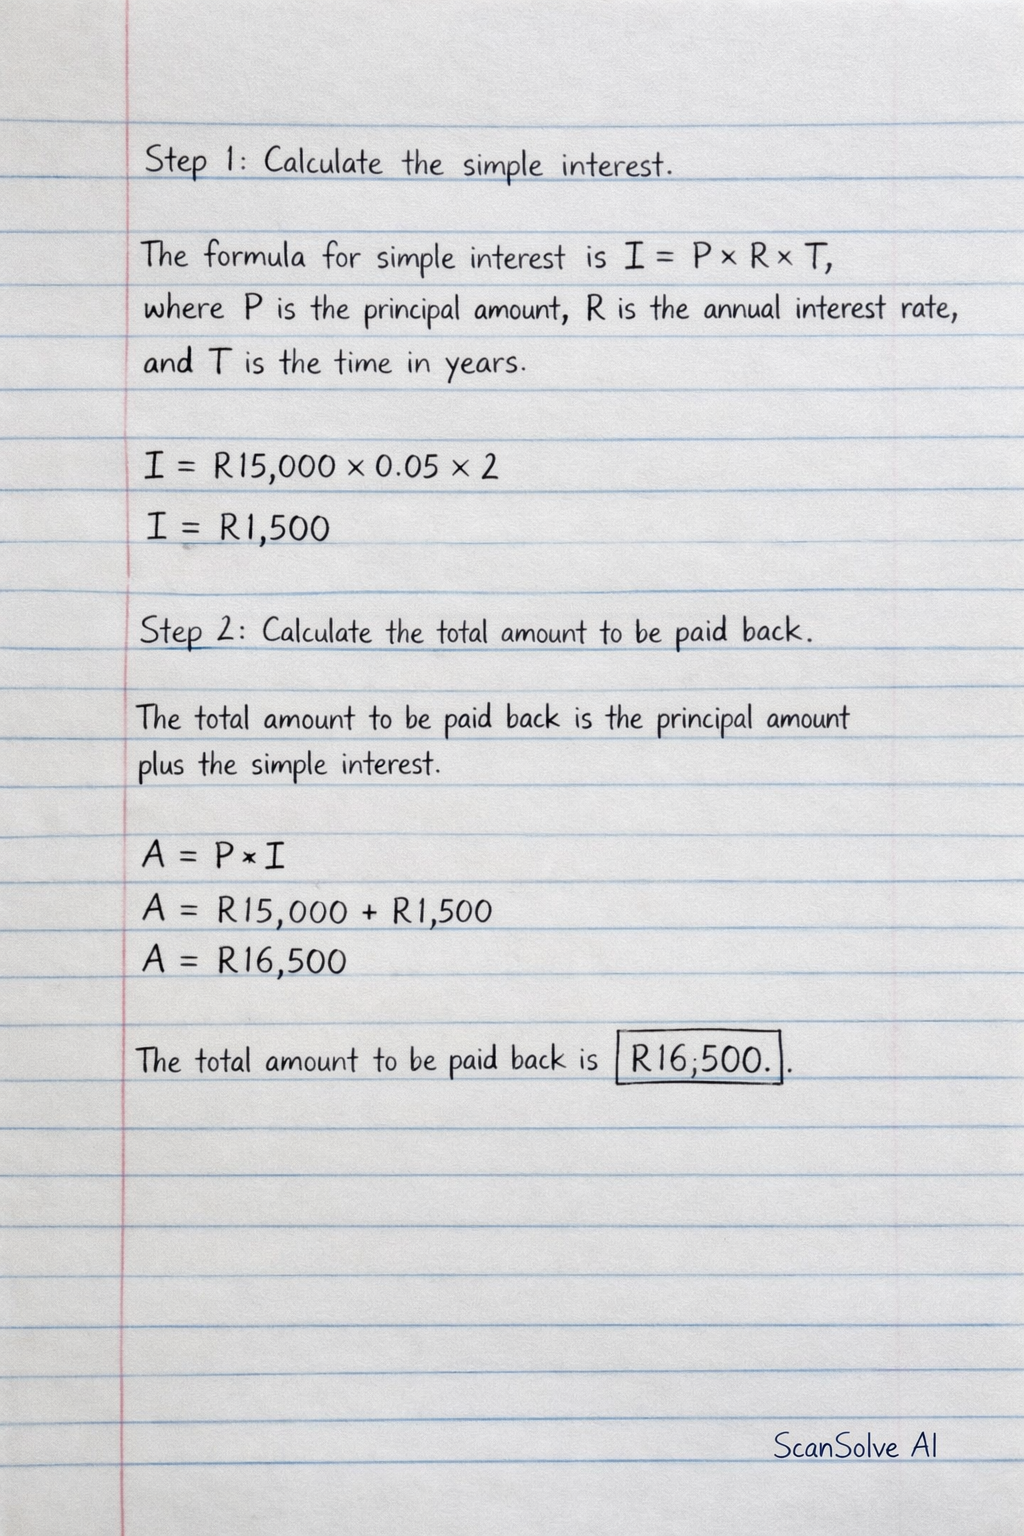 Step 1: Calculate the simple interest.
The formula for simple interest is I = P × R × T,
where P is the principal amount, R is the annual interest rate,
and T is the time in years.
I = R15,000 × 0.05 × 2
I = R1,500
Step 2: Calculate the total amount to be paid back.
The total amount to be paid back is the principal amount
plus the simple interest.
A = P × I
A = R15,000 + R1,500
A = R16,500
The total amount to be paid back is R16;500..
ScanSolve AI